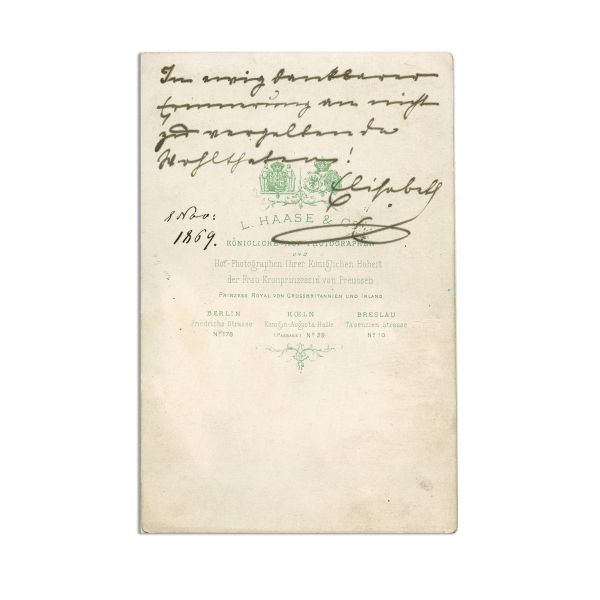 In ewig dankbarer
Erinnerung an nicht
zu vergeltende
Wohlthaten!
Elisabeth
1 Nov:
1869.
L. HAASE & Co
KÖNIGLICHE HOF-PHOTOGRAPHEN
UND
Hof-Photographen Ihrer Königlichen Hoheit
der Frau Kronprinzessin von Preussen
PRINZESS ROYAL VON GROSSBRITANNIEN UND IRLAND.
BERLIN KŒLN BRESLAU
Friedrichs-Strasse Königin-Augusta-Halle Tauenzien Strasse
No 178 (PASSAGE) No 39 No 10